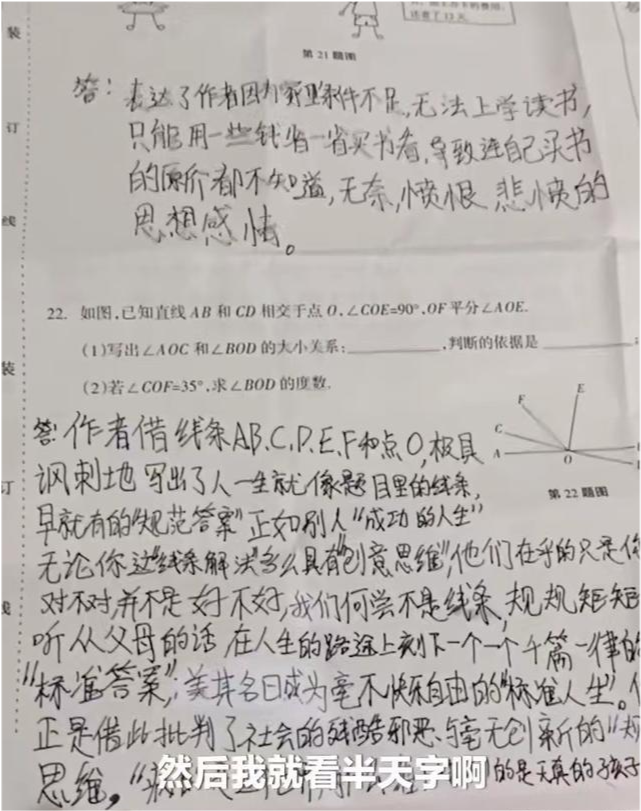 装
第 21 题图
答：表达了作者因为家里条件不足,无法上学读书,
订
只能用一些钱省一省买书看,导致连自己买书
的原价都不知道,无奈,愤恨 悲愤的
线
思想感情。
22. 如图,已知直线 AB 和 CD 相交于点 O,∠COE=90°,OF 平分∠AOE.
(1)写出∠AOC 和∠BOD 的大小关系:________,判断的依据是________
装
(2)若∠COF=35°,求∠BOD 的度数.
F E
C
A O
第 22 题图
答:作者借线条AB.C.D.E.F和点O,极具
讽刺地 写出了人一生就像题目里的线条,
订
早就有的“规范答案”正如别人“成功的人生”
无论你这“线条解法”多么具有“创意思维”,他们在乎的只是你
线
对不对,并不是好不好,我们何尝不是线条,规规矩矩
听从父母的话 在人生的路途上刻下一个一个千篇一律的
“标准答案”;美其名曰成为毫不快乐自由的“标准人生”。
正是借此批判了社会的残酷邪恶、与毫无创新的“
思维。
的是天真的孩子
然后我就看半天字啊